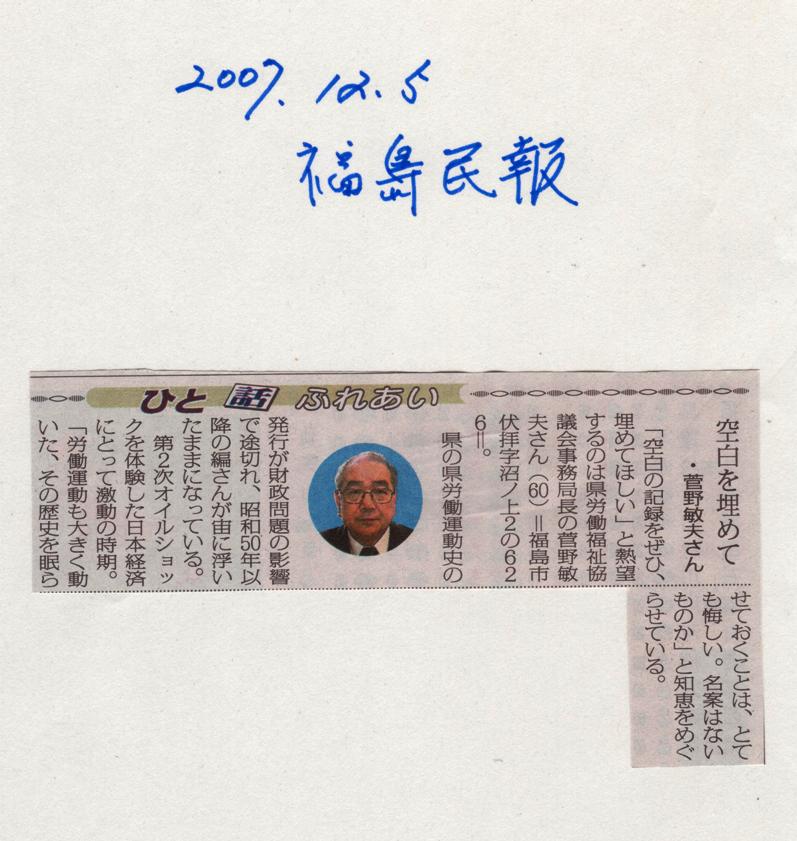 2007.12.5
福島民報
ひと 話 ふれあい
空白を埋めて
・菅野敏夫さん
「空白の記録をぜひ、
埋めてほしい」と熱望
するのは県労働福祉協
議会事務局長の菅野敏
夫さん(60)＝福島市
伏拝字沼ノ上2の62
6＝。
県の県労働運動史の
発行が財政問題の影響
で途切れ、昭和50年以
降の編さんが宙に浮い
たままになっている。
第2次オイルショッ
クを体験した日本経済
にとって激動の時期。
「労働運動も大きく動
いた、その歴史を眠ら
せておくことは、とて
も悔しい。名案はない
ものか」と知恵をめぐ
らせている。